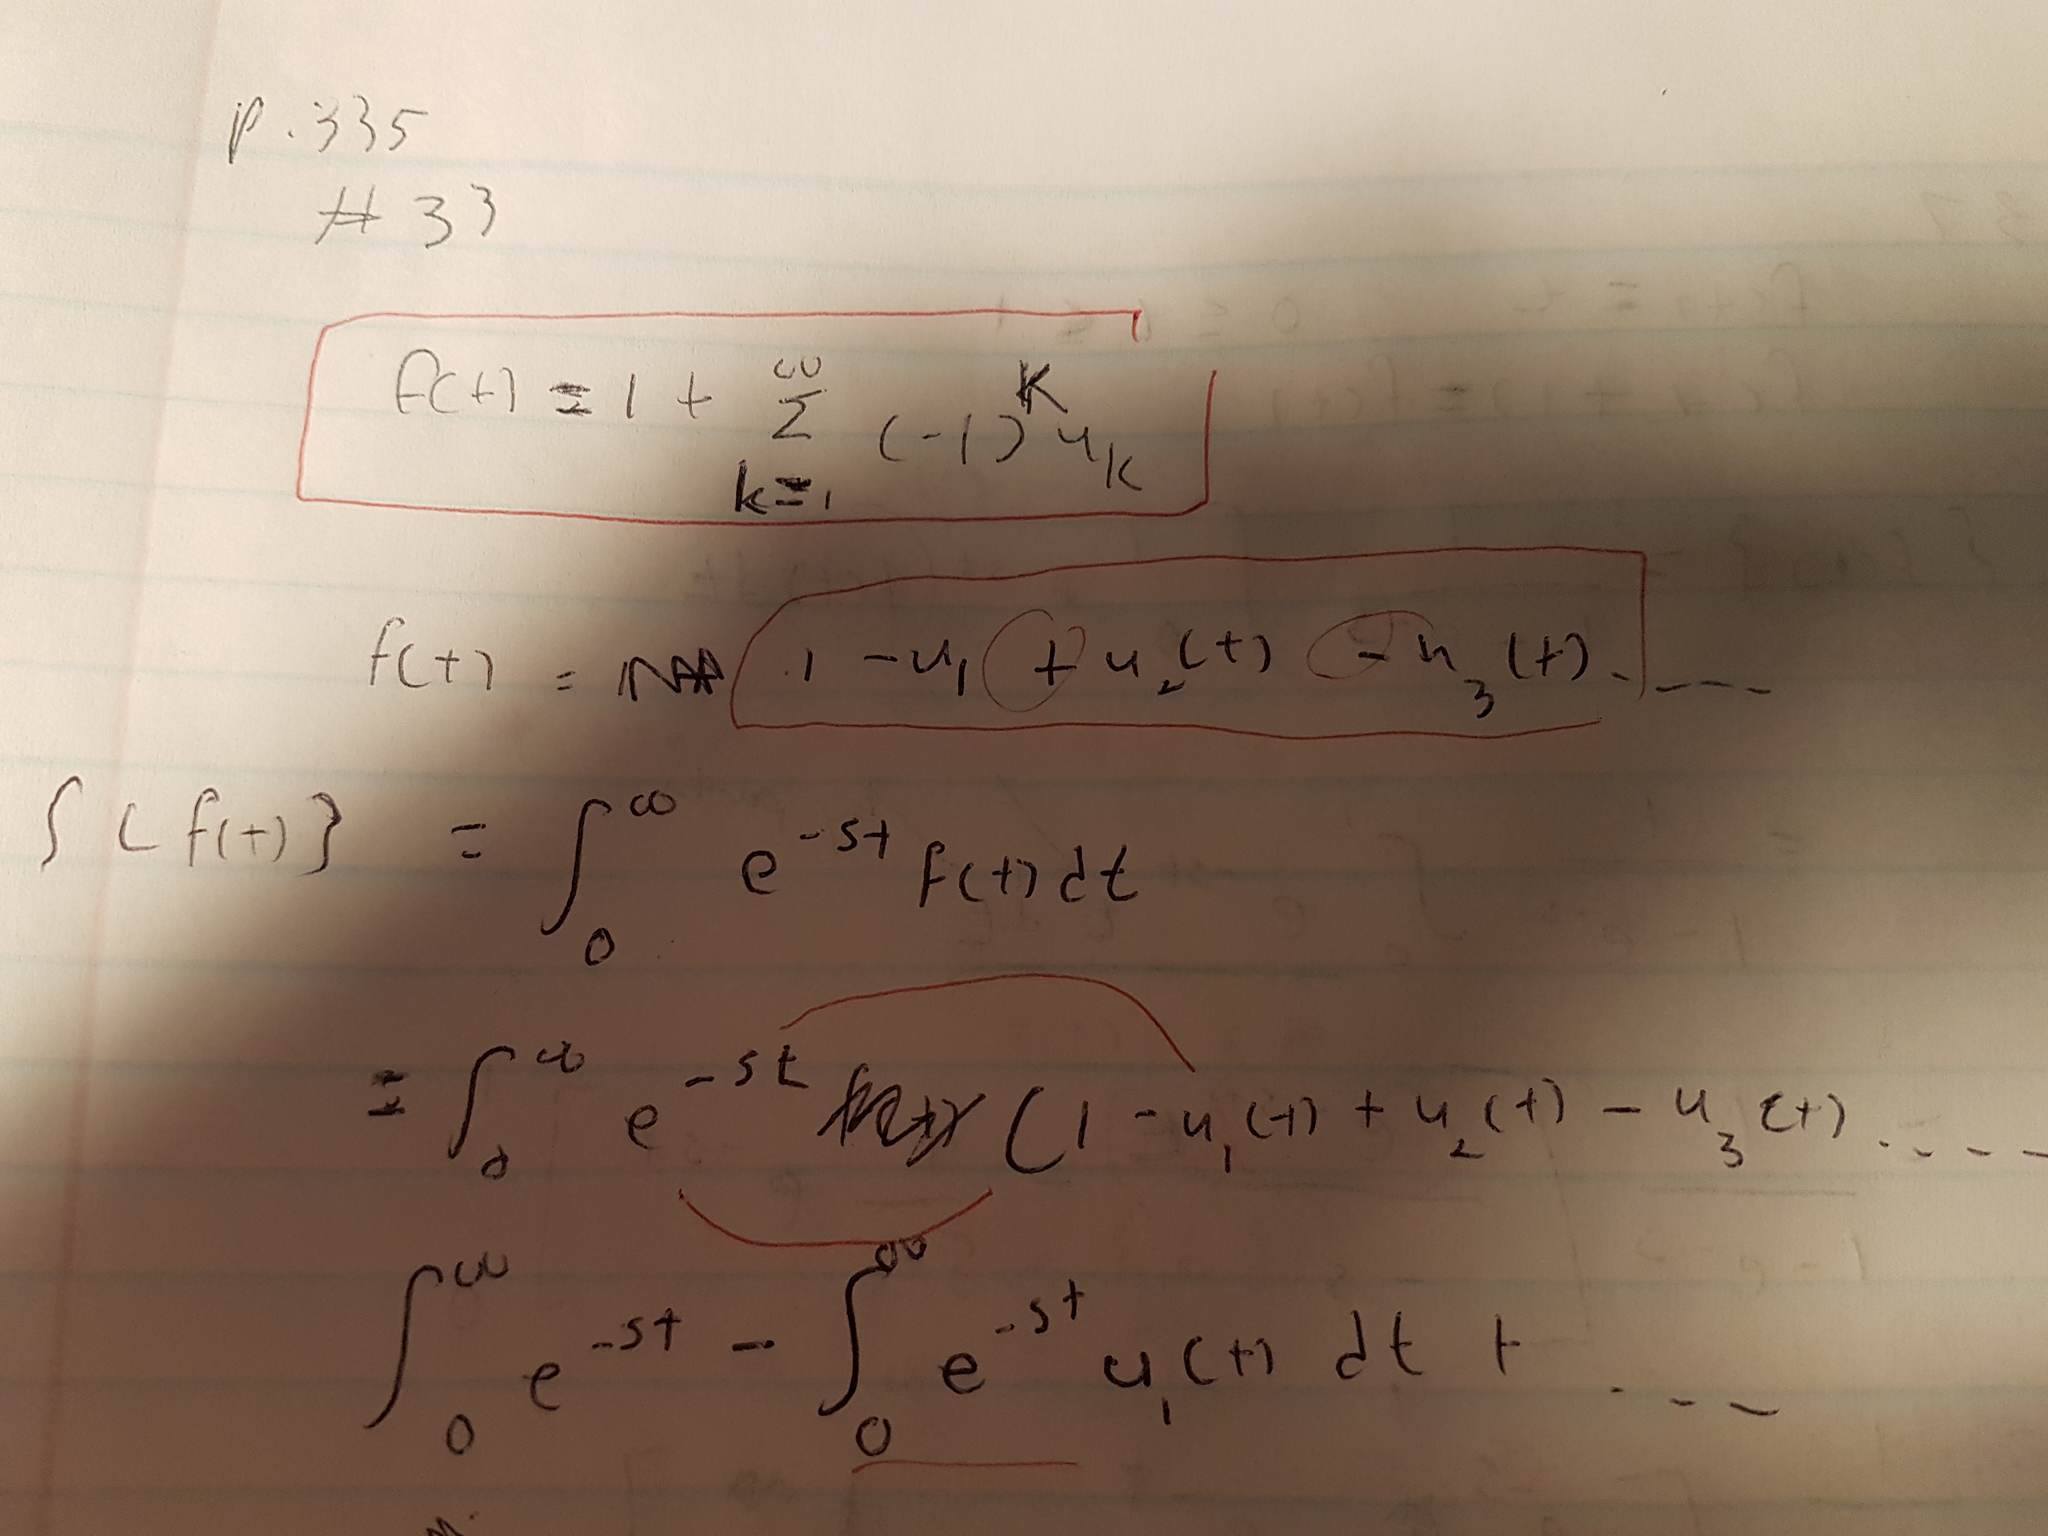 p. 335
# 33
f(t) = 1 + ∞ Σ k=1 (-1)^k u_k
f(t) = 1 - u_1 + u_2(t) - u_3(t) . - - -
∫ { f(t) } = ∫_0^∞ e^{-st} f(t) dt
= ∫_0^∞ e^{-st} ( 1 - u_1(t) + u_2(t) - u_3(t) . - - -
∫_0^∞ e^{-st} - ∫_0^∞ e^{-st} u_1(t) dt + . - - -